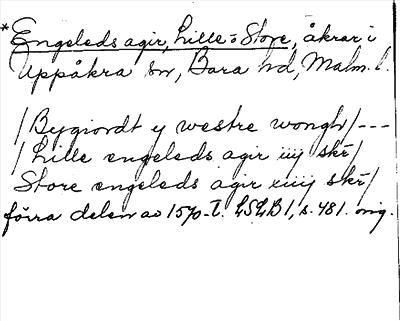 *Engeleds agir, Lille= o Store, åkrar i
Uppåkra sn, Bara hd, Malm. l.
/Bygiordt y westre wongh/---
/Lille engeleds agir iiij skr/
Store engeleds agir xiiij skr/
förra delen av 1570-t. LSLB1, s. 481. orig.